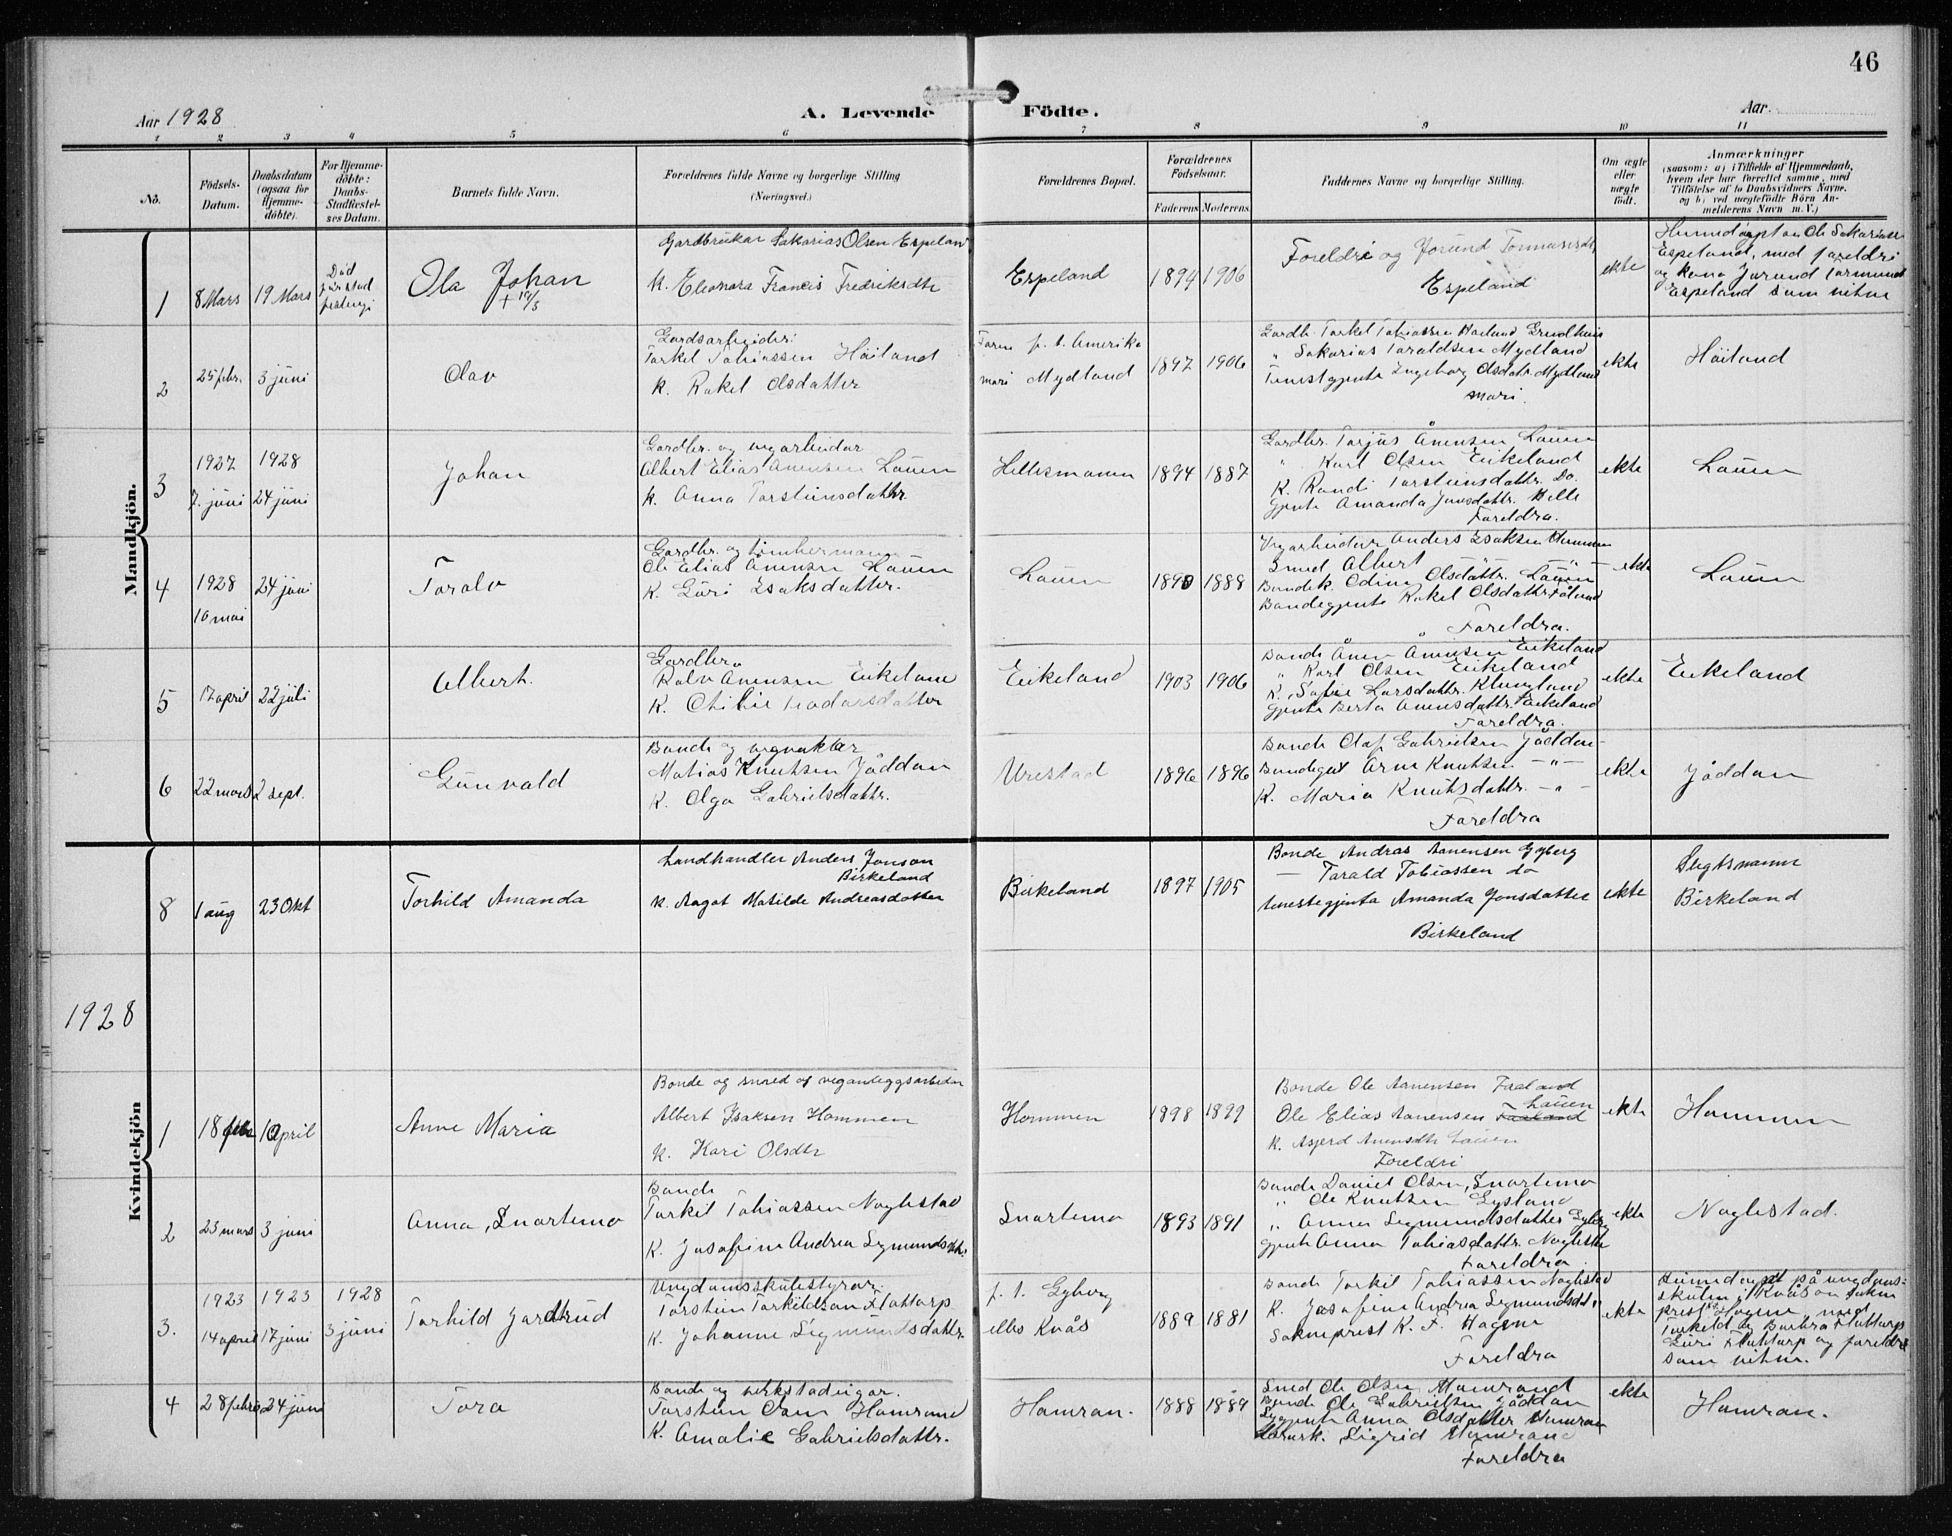 46
Aar 1928
A. Levende Födte.
Aar
1 2 3 4 5 6 7 8 9 10 11
No.
Födsels-Datum.
Daabsdatum (ogsaa for Hjemme-döbte).
For Hjemme-döbte: Daabs-Stadfæstel-ses Datum.
Barnets fulde Navn.
Forældrenes fulde Navne og borgerlige Stilling (Næringsvei.)
Forældrenes Bopæl.
Forældrenes Födselsaar.
Faderens Moderens
Faddernes Navne og borgerlige Stilling.
Om ægte eller uægte födt.
Anmærkninger
(saasom: a) i Tilfælde af Hjemmedaab,
hvem der har forrettet samme, med
Tilföielse af to Daabsvidners Navne,
og b) ved uægtefödte Börn An-
melderens Navn m. V.)
Mandkjön.
Gardbrukar Sakarias Olsen Espeland
K. Eleonora Francis Fredriksdtr
1 8 Mars 19 Mars
Död
Ola Johan
+ 19/3
Espeland 1894 1906
Foreldri og Jorund Tommasdtr
Espeland
ekte
Espeland, med foreldri
og kona Jorund
Espeland som vitne
2 25 febr. 3 juni
Olav
Gardsarbeider:
Torkel Tobiassen Höiland
K. Rakel Olsdatter
p. t. Amerika
Mydland
1897 1906
Gardb. Torkel Tobiassen Höiland
" Sakarias Taraldsen Mydland
Tenestgjenta Ingeborg Olsdatr. Mydland
ekte
Höiland
3 1927 1928
7. juni 24 juni
Johan
Gardbr. og vegarbeidar
Albert Elias Ånensen Lauen
K. Anna Torsteinsdattr.
1894 1887
Gardbr. Tarjus Ånensen Lauen
" Karl Olsen Eikeland
K. Randi Torsteinsdattr. Do.
Gjenta Amanda Jensdattr. Helle
Foreldra.
ekte
Lauen
4 1928 24 juni
10 mai
Toralv
Gardbr. og timbermann
Ole Elias Ånensen Lauen
K. Guri Isaksdatter.
Lauen
1890 1888
Vegarbeidar Anders Isaksen Hommen
Smed Albert — " —
Bondek. Odine Olsdattr. Lauen
Bondegjenta Rakel Olsdattr.
Foreldra.
ekte
Lauen
5 17 april 22 juli
Albert.
Gardbr.
Ånensen Eikeland
Eikeland
1903 1906
Bonde Ånen Ånensen Eikeland
" Karl Olsen Eikeland
K. Sofie Larsdattr. Klungland
Gjenta Berta Ånensdattr. Eikeland
Foreldra.
ekte
Eikeland
6 22 mars 2 sept.
Gunvald
Bonde og vegvaktar
Matias Knutsen Jåddan
K. Olga Gabrielsdattr.
Urestad
1896 1896
Bonde Olaf Gabrielsen Jåddan
Bondegut Arne Knutsen — " —
K. Maria Knutsdattr. — " —
Foreldra
ekte
Jåddan
8 1 aug 23 Okt
Torhild Amanda
Landhandler Anders Jonson
Birkeland
K. Aagot Matilde Andreasdatter
Birkeland
1897 1905
Bonde Andras Aanensen Gyberg
— Tarald Tobiassen do
tenestegjenta Amanda Jonsdatter
Birkeland
ekte
Slegtsnamn
Birkeland
1928
Kvindekjön
1 18 febr 10 april
Anne Maria
Bonde og smed og veganleggsarbeidar
Albert Isaksen Hommen
K. Kari Olsdtr
Hommen
1898 1899
Bonde Ole Aanensen Fneland
Lauen
Ole Elias Aanensen
K. Asjerd Anensdtr Lauen
Foreldri
ekte
Hommen
2 23 mars 3 juni
Anna, Snartemo
Bonde
Torkil Tobiassen Noglestad
K. Josefine Andrea Segmundsdtr.
Snartemo
1893 1891
Bonde Daniel Olsen, Snartemo
" Ole Knutsen Gysland
" Anna Segmundsdatter Gyberg
gjenta Anna Tobiasdattr. Noglestad
Foreldra.
ekte
Noglestad.
3. 1923 1923 1928
14 april 17 juni 3 juni
Torhild Jordtrud
Ungdomsskulestyrar.
Torstein Torkildson Flottorp
K. Johanne Segmundsdattr.
p. t. Gyberg
elles Kvås
1889 1881
Bonde Torkil Tobiassen Noglestad
K. Josefine Andrea Segmundsdtr
Sokneprest K. F. Hagene
Foreldra
ekte
Heimedøypt på ungdoms-
skulen i Kvås av sokne
prest Hagene, med
Torkild og Barbra Flottorp
Guri Flottorp og foreldri
som vitne.
4 28 febr 24 juni
Tora
Bonde og verkstadeigar.
Torstein Olsen Homrand
K. Amalie Gabrielsdattr.
Homran.
1888 1889
Smed Ole Olsen Homrand
Bonde Ole Gabrielsen Jåddan
gjenta Anna Olsdatter Homran
Sigrid Homrand
Foreldra
ekte
Homran.